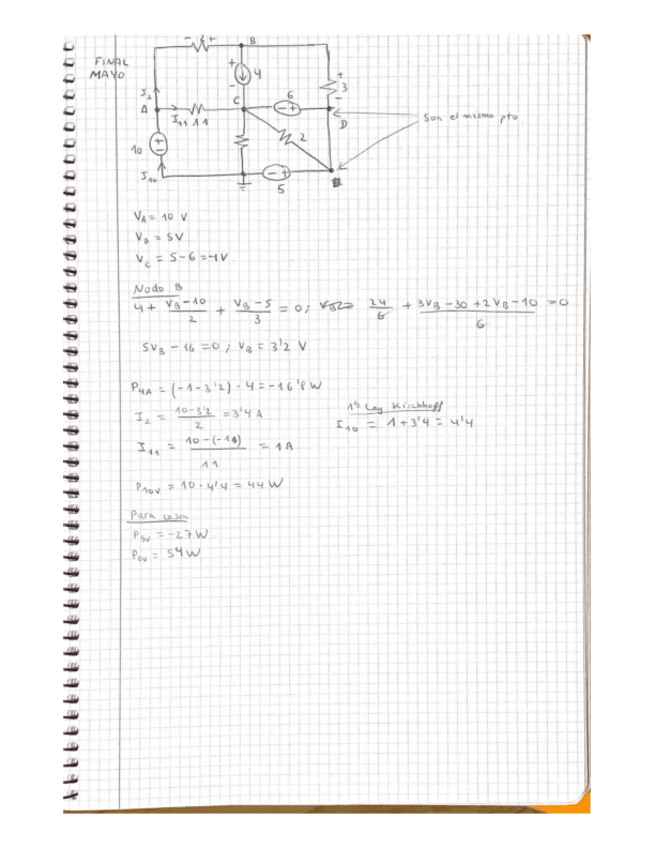 FINAL
MAYO
- +
B
+
4
-
+
3
-
I₂
A
I₁₁ 11
C
6
- +
D
Son el mismo pto
2
10
+
-
I₁₀
- +
5
V_A = 10 V
V_D = 5V
V_C = 5-6 = -1V
Nodo B
4 + (V_B-10)/2 + (V_B-5)/3 = 0; 24/6 + (3V_B-30+2V_B-10)/6 = 0
5V_B - 16 = 0; V_B = 3'2 V
P_4A = (-1-3'2)·4 = -16'8 W
I₂ = (10-3'2)/2 = 3'4 A
1ª Ley Kirchhoff
I₁₀ = 1+3'4 = 4'4
I₁₁ = (10-(-1))/11 = 1A
P_10V = 10·4'4 = 44 W
Para casa
P_5V = -27 W
P_6V = 54 W